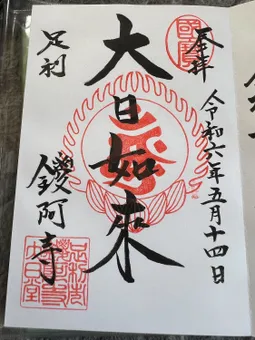 奉拝
令和六年五月十四日
大日如来
足利
鑁阿寺